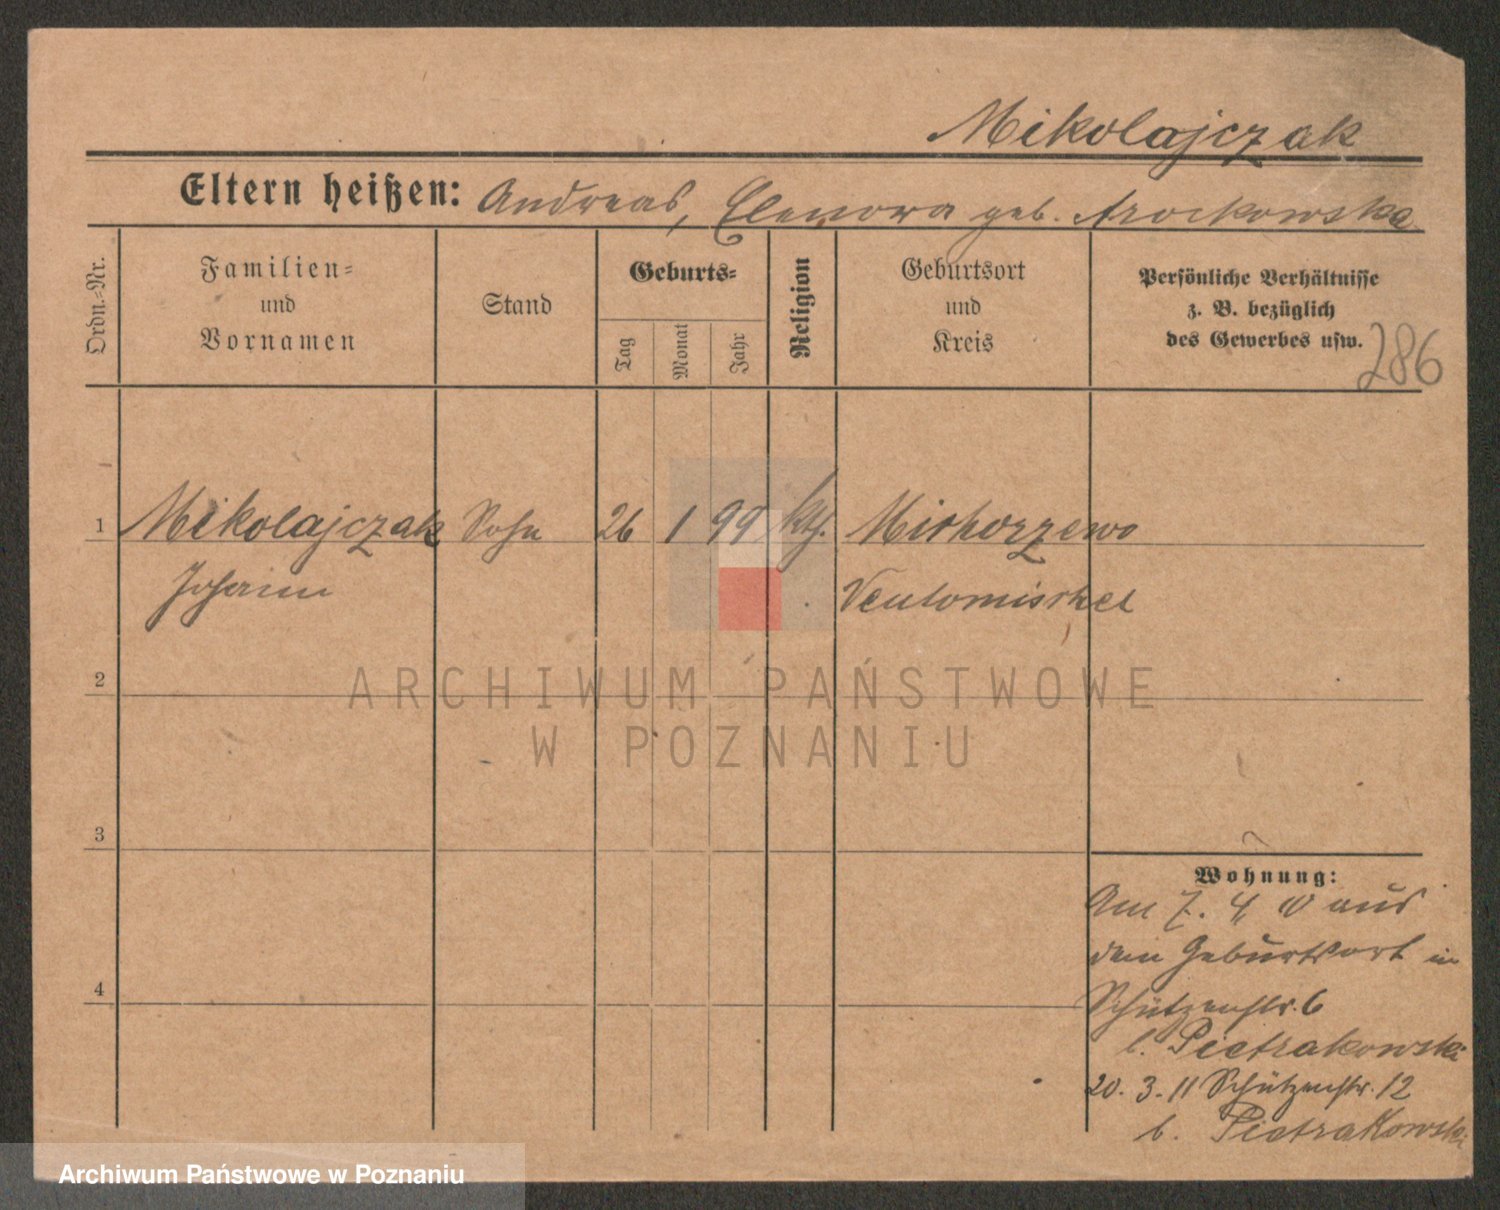 Mikolajczak
Eltern heißen: Andreas, Elenora geb.
Ordn.-Nr.
Familien-
und
Vornamen
Stand
Geburts-
Tag
Monat
Jahr
Religion
Geburtsort
und
Kreis
Persönliche Verhältnisse
z. B. bezüglich
des Gewerbes usw.
286
1 Mikolajczak Sohn 26 1 99 kth.
Johann
2
ARCHIWUM PAŃSTWOWE
W POZNANIU
3
4
Wohnung:
Am 7. 4 10 aus
dem Geburtsort in
Schützenstr. 6
b. Pietrakowski
20. 3. 11 Schützenstr. 12
b. Pietrakowski
Archiwum Państwowe w Poznaniu